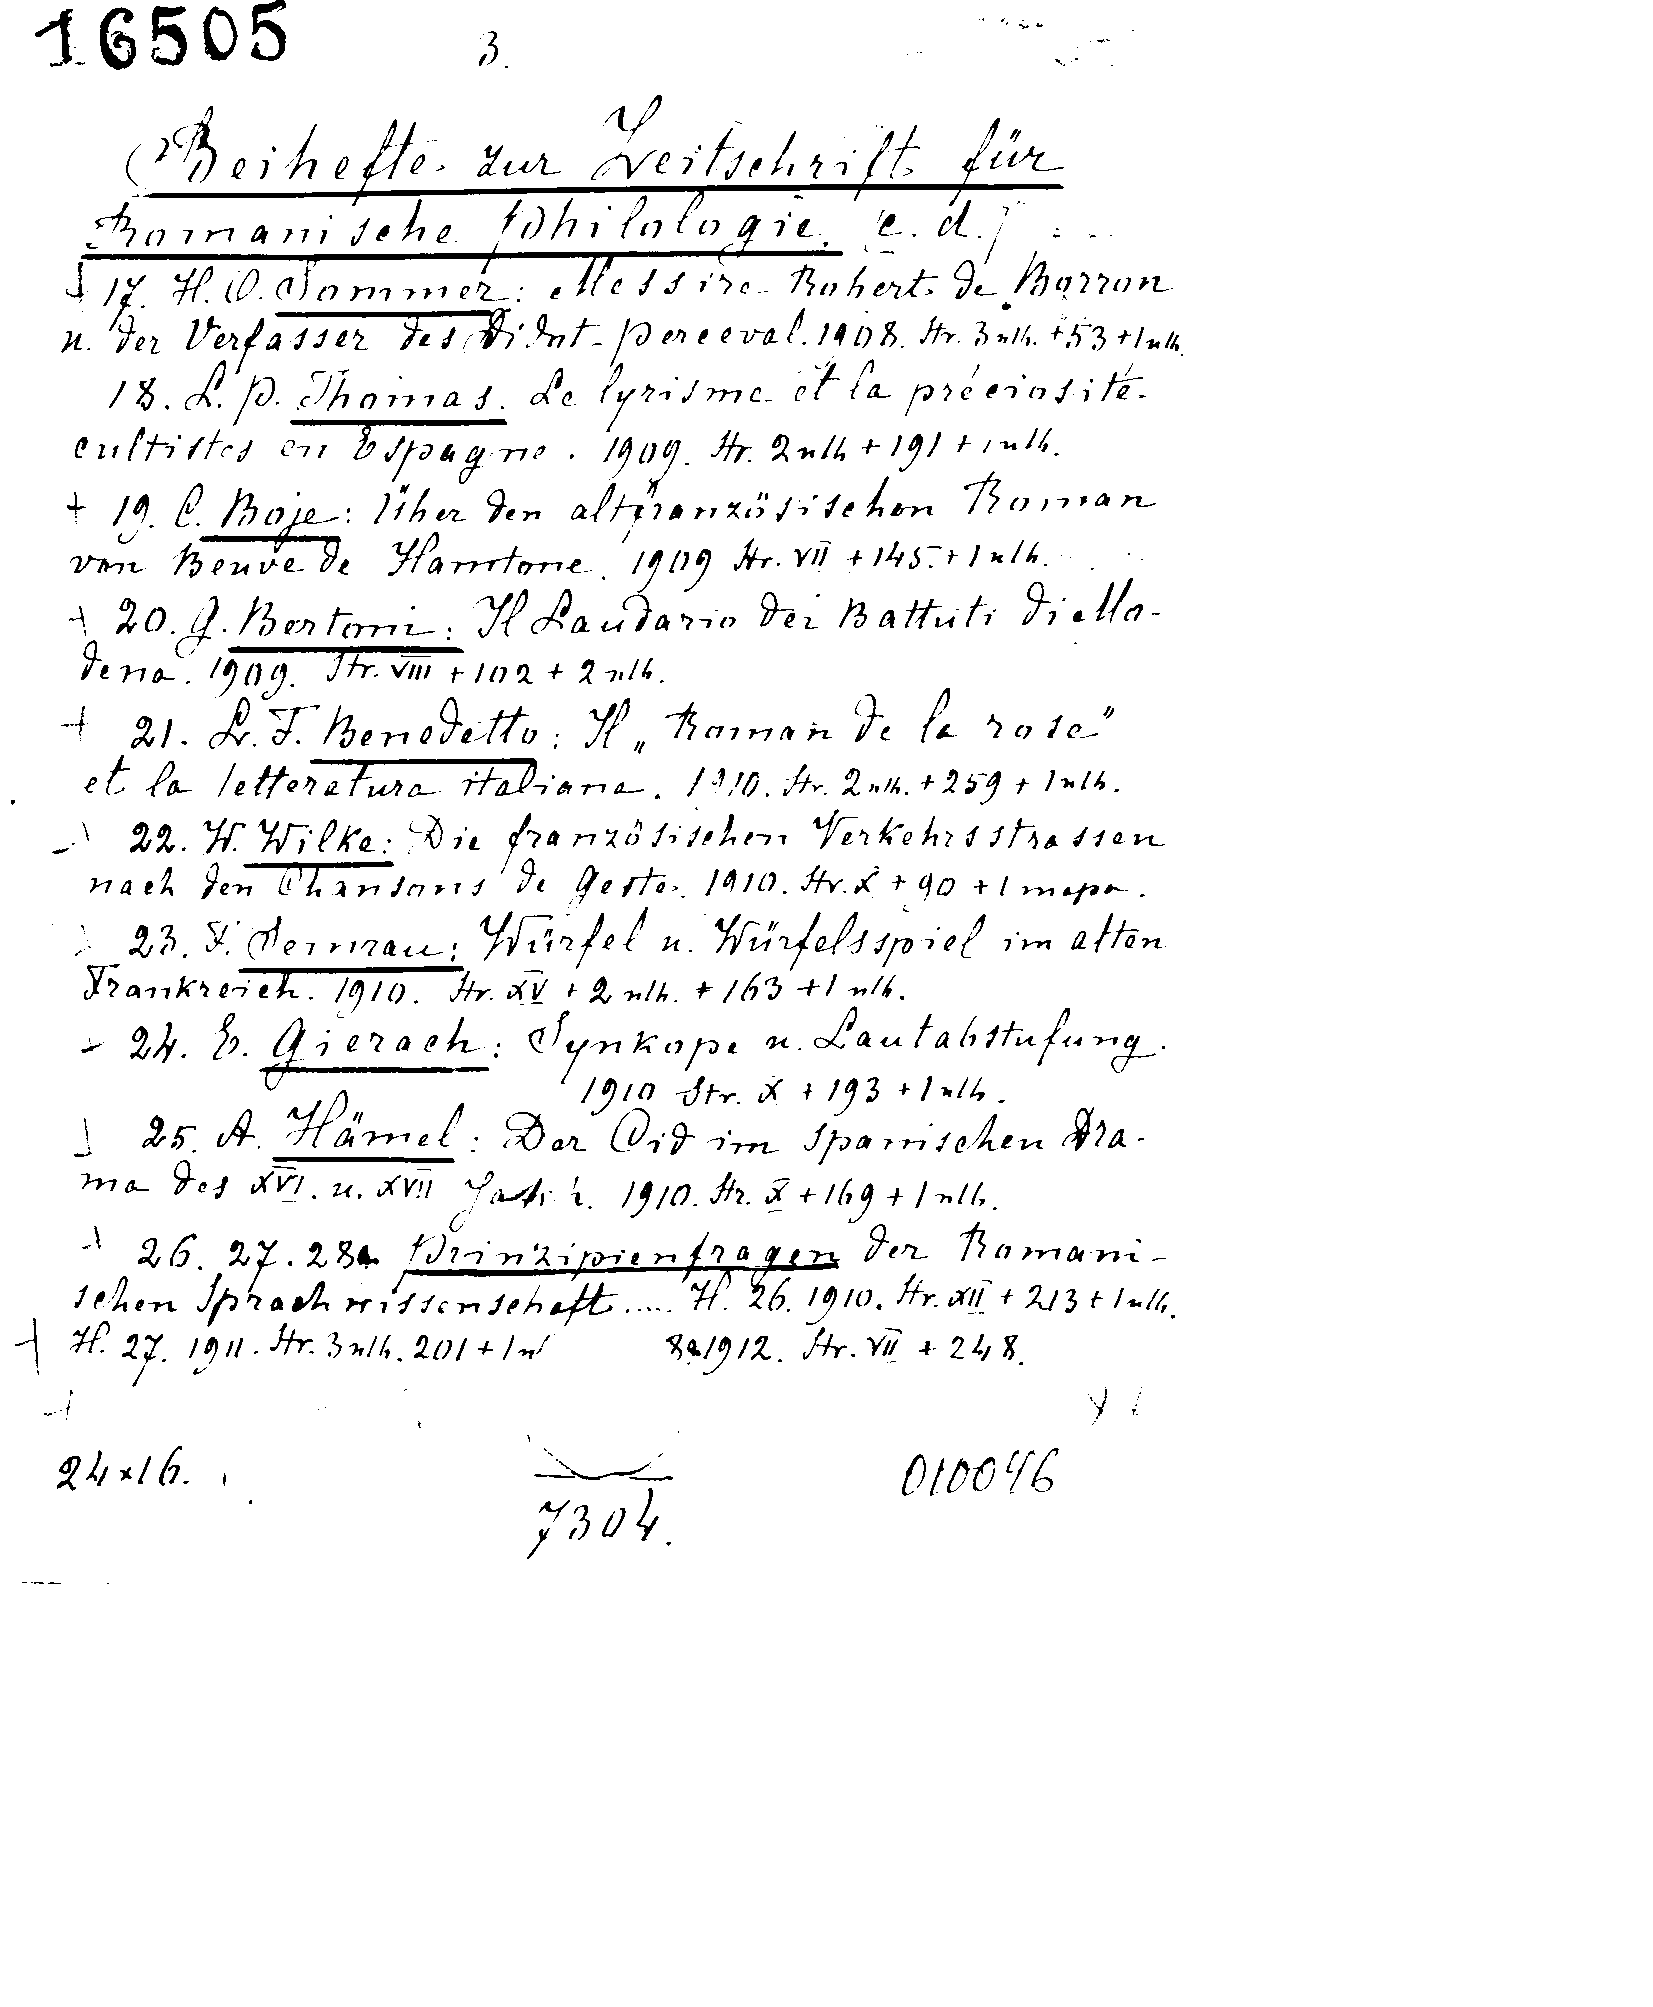 16505
3.
Beihefte zur Zeitschrift für
Romanische Philologie. [c. d.]
+ 17. H. O. Sommer: Messire Robert de Borron
u. der Verfasser des Didot-Perceval. 1908. Str. 3 nlb. + 53 + 1 nlb.
18. L. P. Thomas. Le lyrisme et la préciosité
cultistes en Espagne. 1909. Str. 2 nlb + 191 + 1 nlb.
+ 19. C. Boje: Über den altfranzösischen Roman
von Beuve de Hamtone. 1909 Str. VII + 145 + 1 nlb.
+ 20. G. Bertoni: Il Laudario dei Battuti di Mo-
dena. 1909. Str. VIII + 102 + 2 nlb.
+ 21. L. F. Benedetto: Il „Roman de la rose"
et la letteratura italiana. 1910. Str. 2 nlb. + 259 + 1 nlb.
22. W. Wilke: Die französischen Verkehrsstrassen
nach den Chansons de Geste. 1910. Str. X + 90 + 1 mapa.
23. F. Semrau: Würfel u. Würfelsspiel im alten
Frankreich. 1910. Str. XV + 2 nlb. + 163 + 1 nlb.
24. E. Gierach: Synkope u. Lautabstufung.
1910 Str. X + 193 + 1 nlb.
25. A. Hämel: Der Cid im spanischen Dra-
ma des XVI. u. XVII 1910. Str. X + 169 + 1 nlb.
+ 26. 27. 28a Prinzipienfragen der Romani-
schen Sprachwissenschaft..... H. 26. 1910. Str. XII + 213 + 1 nlb.
+ H. 27. 1911. Str. 3 nlb. 201 + 1 8a 1912. Str. VII + 248.
24x16.
7304.
010046